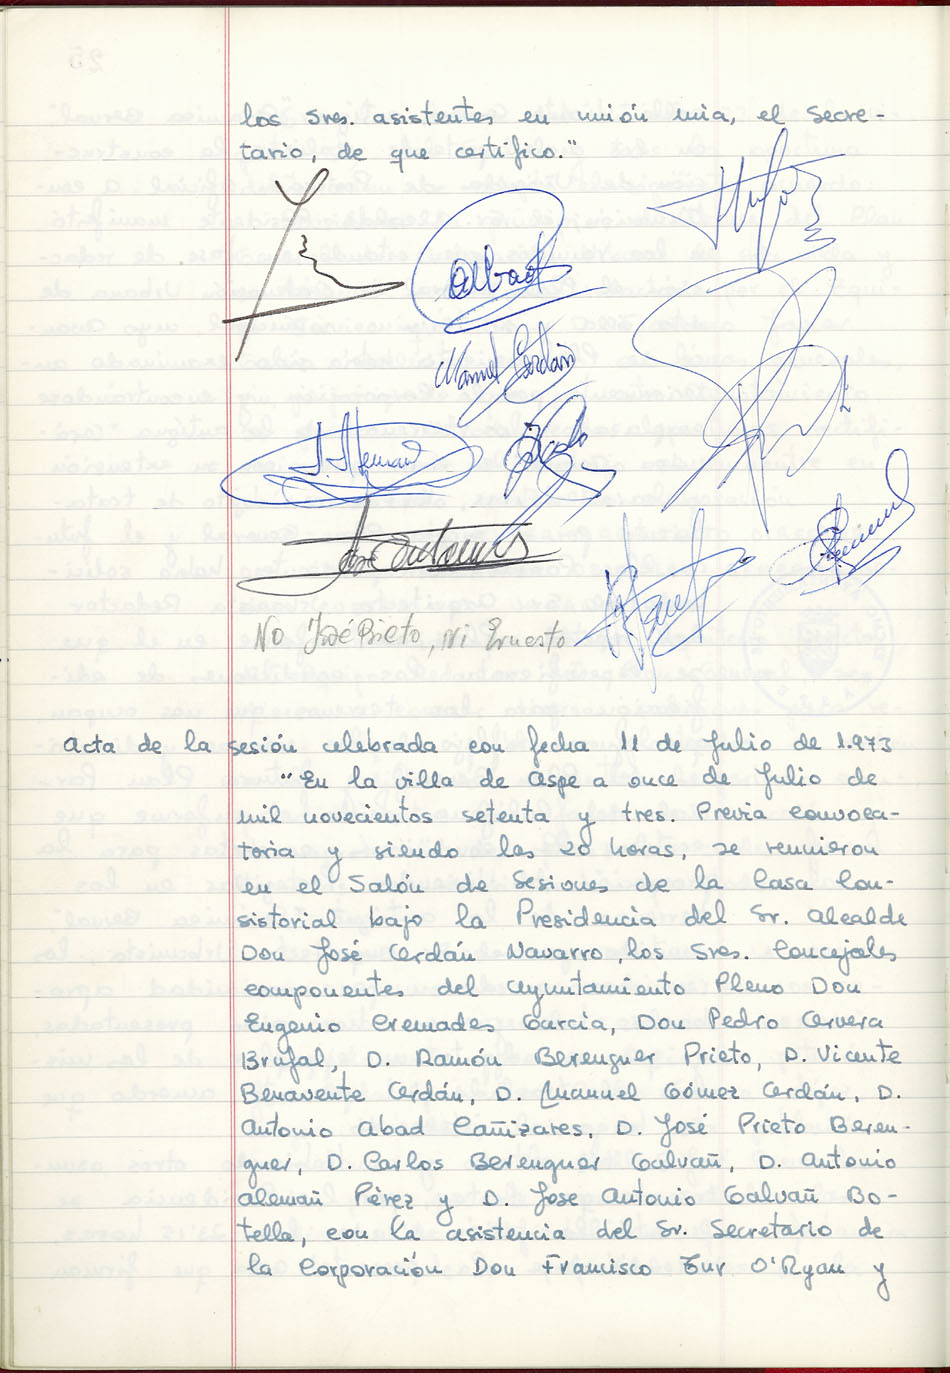 los Sres. asistentes en unión mia, el Secre-
tario, de que certifico."
Abad
Manuel Cerdán
No José Prieto, ni Ernesto
Acta de la sesión celebrada con fecha 11 de Julio de 1.973
"En la villa de Aspe a once de Julio de
mil novecientos setenta y tres. Previa convoca-
toria y siendo las 20 horas, se reunieron
en el Salón de Sesiones de la Casa Con-
sistorial bajo la Presidencia del Sr. Alcalde
Don José Cerdán Navarro, los Sres. Concejales
componentes del Ayuntamiento Pleno Don
Eugenio Cremades Garcia, Don Pedro Cervera
Brufal, D. Ramón Berenguer Prieto, D. Vicente
Benavente Cerdán, D. Manuel Gómez Cerdán, D.
Antonio Abad Cañizares, D. José Prieto Beren-
guer, D. Carlos Berenguer Galvañ, D. Antonio
Alemañ Pérez y D. Jose Antonio Galvañ Bo-
tella, con la asistencia del Sr. Secretario de
la Corporación Don Francisco Tur O'Ryan y